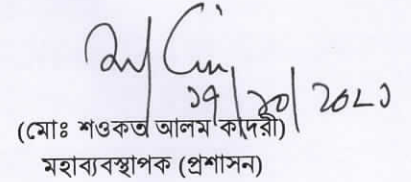 ১৭/১০/২০২১
(মোঃ শওকত আলম কাদরী)
মহাব্যবস্থাপক (প্রশাসন)